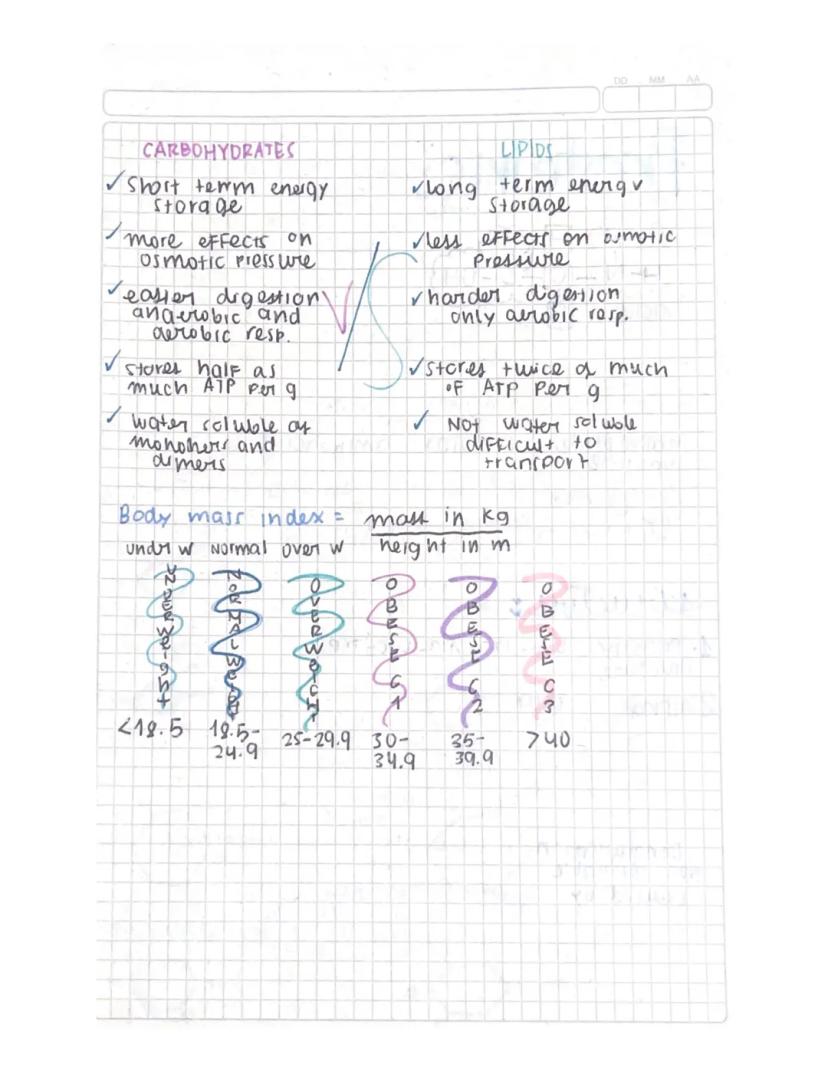 DD MM AA
CARBOHYDRATES
✓ Short term energy
storage
✓ more effects on
osmotic pressure
✓ easier digestion
anaerobic and
aerobic resp.
✓ stores half as
much ATP per g
✓ water soluble as
monomers and
dimers
V/S
LIPIDS
✓ long term energy
storage
✓ less effects on osmotic
pressure
✓ harder digestion
only aerobic resp.
✓ stores twice as much
of ATP per g
✓ Not water soluble
difficult to
transport
Body mass index = mass in kg
height in m
under w Normal over w
UNDERWeight
NORMAL WEIGHT
OVERWEIGHT
OBESE C1
OBESE C2
OBESE C3
<18.5
18.5-
24.9
25-29.9
30-
34.9
35-
39.9
>40